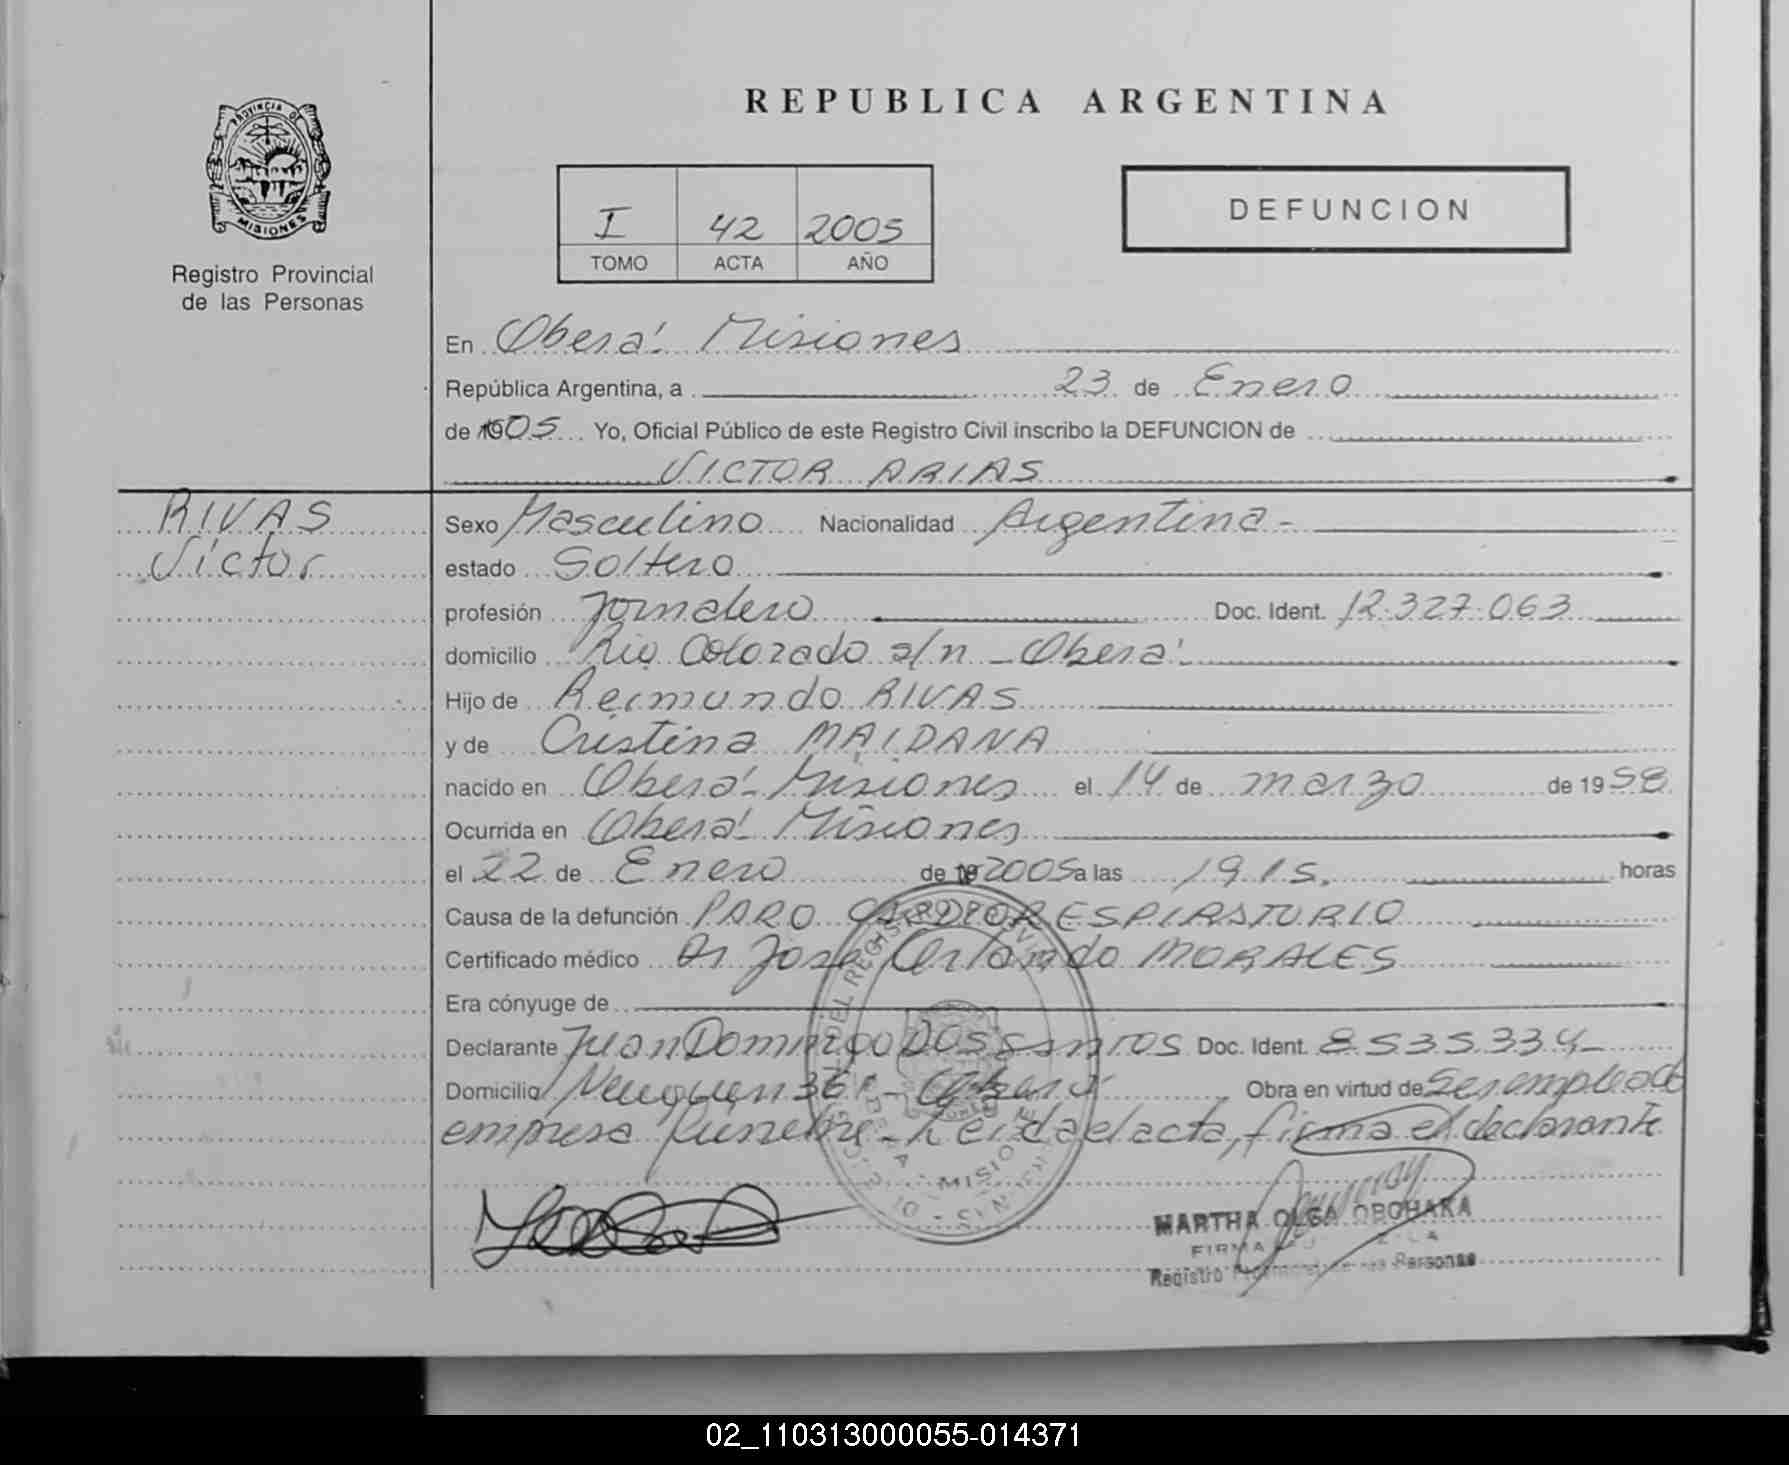 REPUBLICA ARGENTINA
PROVINCIA DE
MISIONES
Registro Provincial
de las Personas
I 42 2005
TOMO ACTA AÑO
DEFUNCION
En Oberá Misiones
República Argentina, a 23 de Enero
de 05 Yo, Oficial Público de este Registro Civil inscribo la DEFUNCION de
VICTOR ARIAS
RIVAS
Víctor
Sexo Masculino Nacionalidad Argentina -
estado Soltero
profesión Jornalero Doc. Ident. 12.327.063
domicilio Rio Colorado s/n - Oberá
Hijo de Reimundo RIVAS
y de Cristina MAIDANA
nacido en Oberá - Misiones el 14 de marzo de 1958
Ocurrida en Oberá Misiones
el 22 de Enero de 2005 a las 19.15. horas
Causa de la defunción PARO CARDIORESPIRATORIO
Certificado médico Dr Jose Orlando MORALES
Era cónyuge de
Declarante Juan Domingo DOS Santos Doc. Ident. 8.535.334 -
Domicilio Neuquen 361 - Oberá Obra en virtud de Ser empleado
empresa funebre - Leida el acta, firma el declarante
MARTHA OLGA OBOHAKA
FIRMA
Registro Personas
02_110313000055-014371